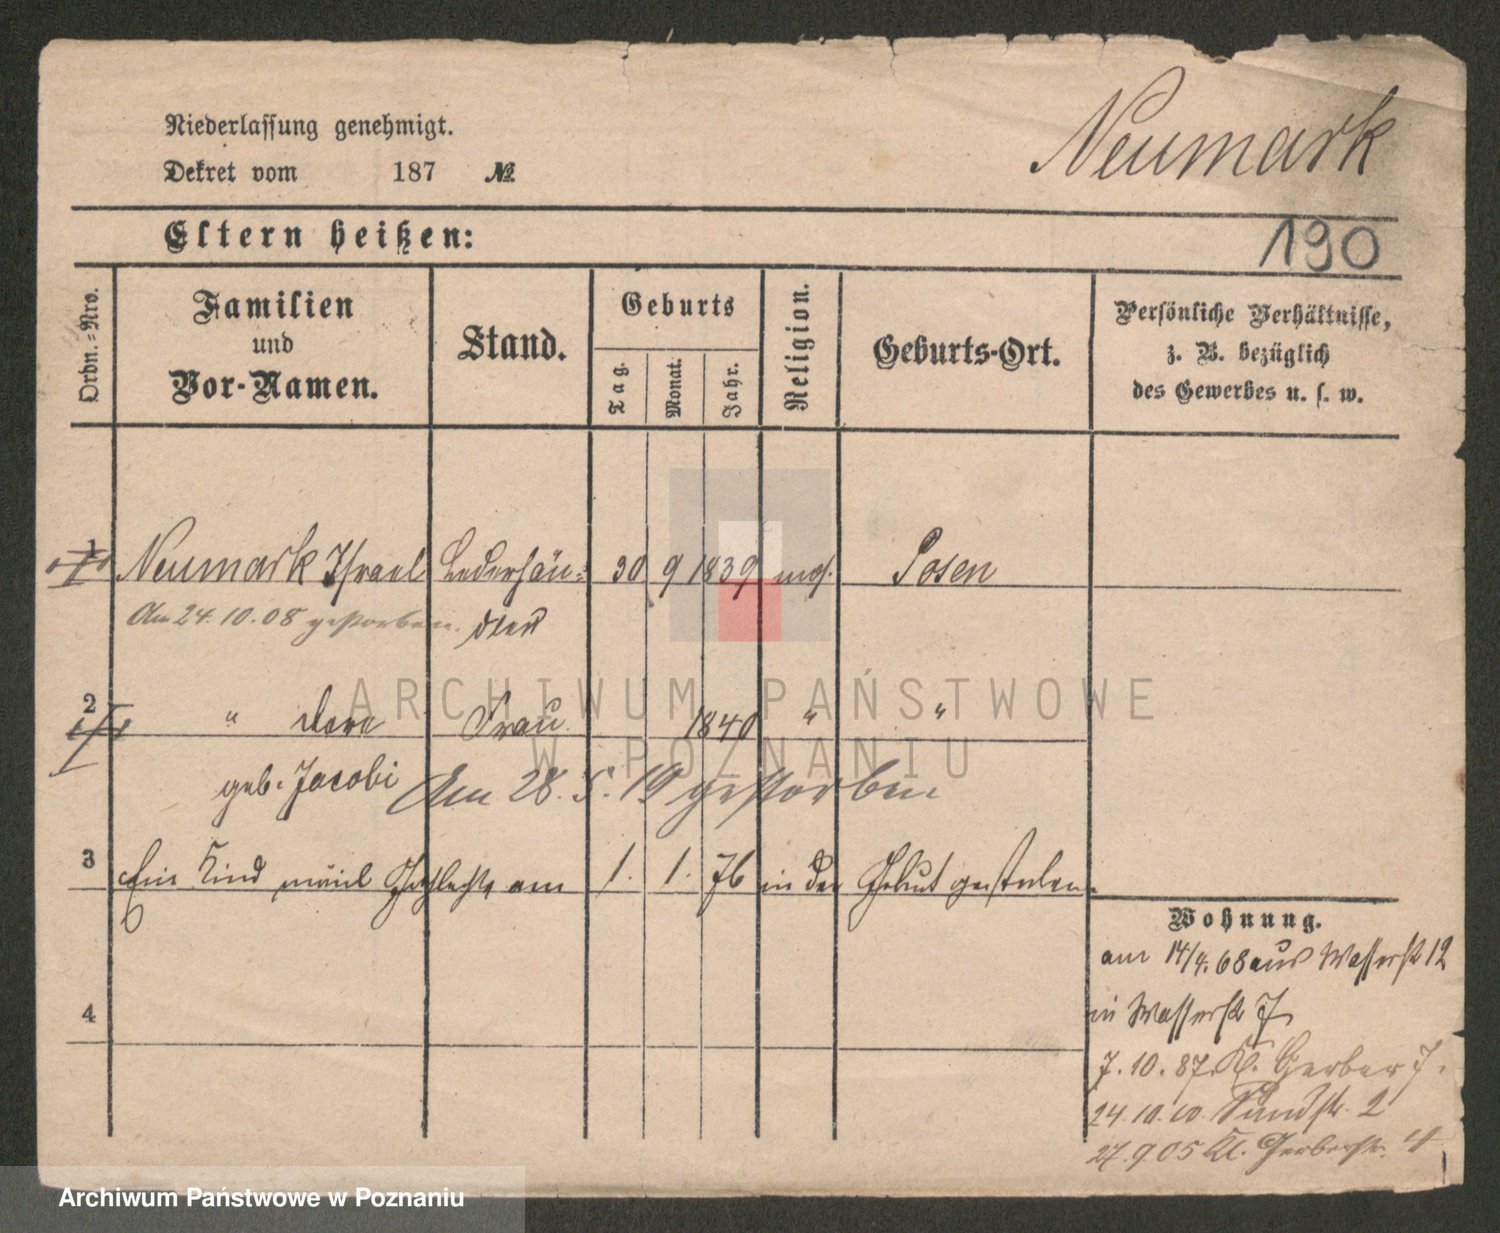 Niederlassung genehmigt.
Dekret vom 187 №
Neumark
Eltern heißen:
190
Ordn.-Nro.
Familien
und
Vor-Namen.
Stand.
Geburts
Tag.
Monat.
Jahr.
Religion.
Geburts-Ort.
Persönliche Verhältnisse,
z. B. bezüglich
des Gewerbes u. s. w.
1 Neumark Israel Lederhän- 30 9 1839 mos. Posen
Am 24.10.08 gestorben. dler
2 " Dora Frau 1840 " "
geb. Jacobi Am 28.5.19 gestorben
3 Ein Kind männl Geschlechts am 1. 1. 76 in der Geburt gestorben
Wohnung.
am 14/4.68 aus Wasserstr 12
in Wasserstr 7
7.10.87 Kl. Gerber 7.
24.10.00 2
27.9.05 Kl. Gerberstr.
4
ARCHIWUM PAŃSTWOWE
W POZNANIU
Archiwum Państwowe w Poznaniu